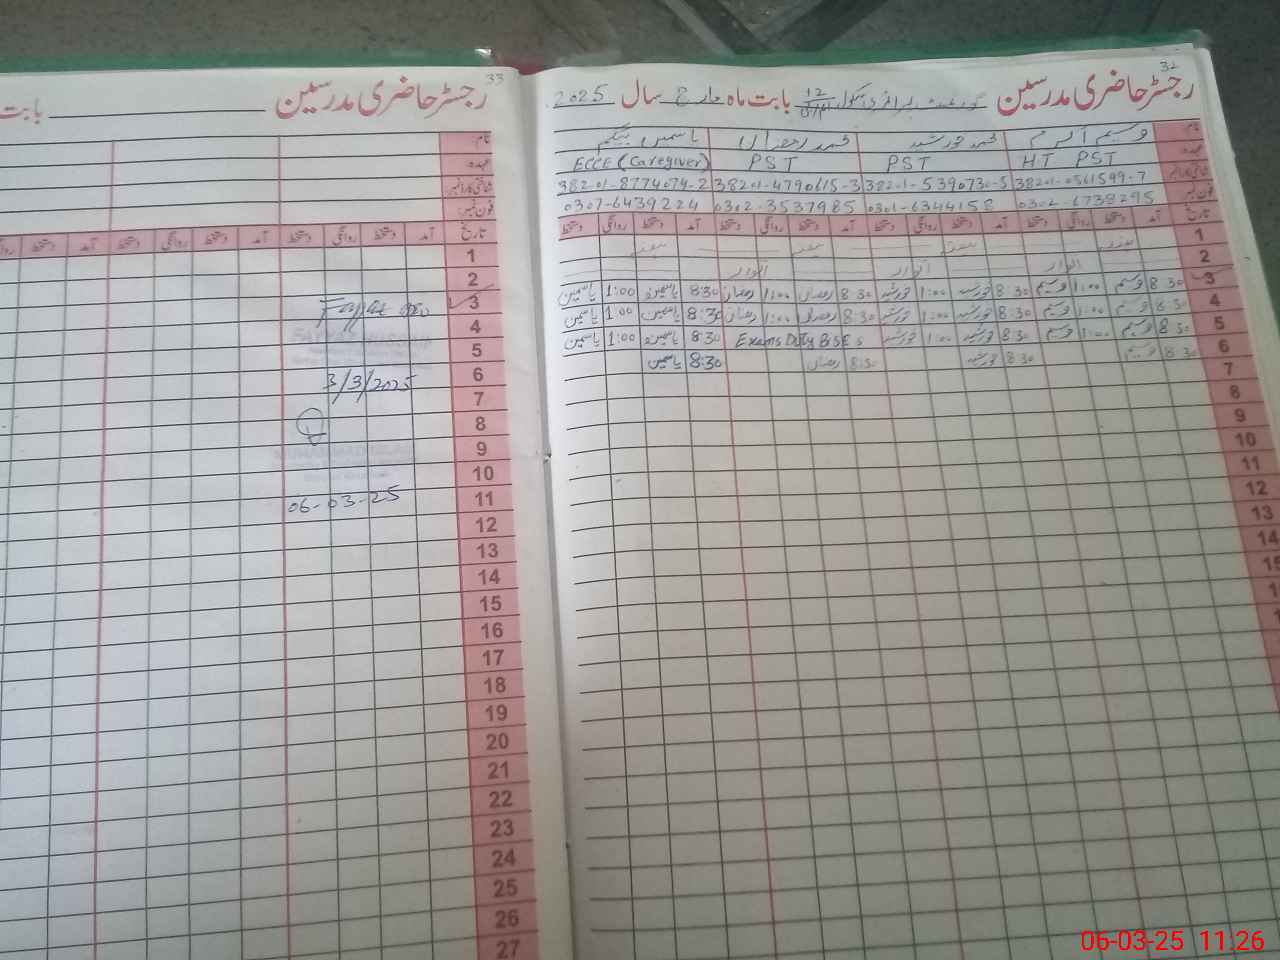 32
رجسٹر حاضری مدرسین گورنمنٹ پرائمری سکول 12 بابت ماہ مارچ سال 2025
نام وسیم اکرم محمد خورشید محمد رمضان یاسمین بیگم
عہدہ HT PST PST PST ECCE (Caregiver)
شناختی کارڈ نمبر 38201-0561599-7 38201-5390730-5 38201-4790615-3 38201-8774074-2
فون نمبر 0302-6738295 0301-6344158 0302-3537985 0307-6439224
تاریخ آمد دستخط روانگی دستخط آمد دستخط روانگی دستخط آمد دستخط روانگی دستخط آمد دستخط روانگی دستخط
1 ہفتہ ہفتہ ہفتہ ہفتہ
2 اتوار اتوار اتوار
3 8:30 وسیم 1:00 وسیم 8:30 خورشید 1:00 خورشید 8:30 رمضان 1:00 رمضان 8:30 یاسمین 1:00 یاسمین
4 8:30 وسیم 1:00 وسیم 8:30 خورشید 1:00 خورشید 8:30 رمضان 1:00 رمضان 8:30 یاسمین 1:00 یاسمین
5 8:30 وسیم 1:00 وسیم 8:30 خورشید 1:00 خورشید Exams Duty BISE 8:30 یاسمین 1:00 یاسمین
6 8:30 وسیم 8:30 خورشید 8:30 رمضان 8:30 یاسمین
7
8
9
10
11
12
13
14
15
33
رجسٹر حاضری مدرسین بابت
نام
عہدہ
شناختی کارڈ نمبر
فون نمبر
تاریخ آمد دستخط روانگی دستخط آمد دستخط روانگی دستخط آمد دستخط روانگی
1
2
3
4
5
6 3/3/2025
7
8
9
10
11 06-03-25
12
13
14
15
16
17
18
19
20
21
22
23
24
25
26
27
06-03-25 11:26